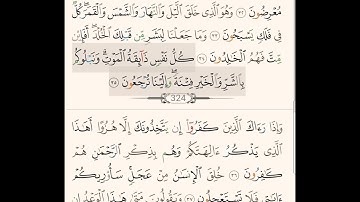 مُعْرِضُونَ ٣٢ وَهُوَ ٱلَّذِى خَلَقَ ٱلَّيْلَ وَٱلنَّهَارَ وَٱلشَّمْسَ وَٱلْقَمَرَ ۖ كُلٌّ
فِى فَلَكٍ يَسْبَحُونَ ٣٣ وَمَا جَعَلْنَا لِبَشَرٍ مِّن قَبْلِكَ ٱلْخُلْدَ ۖ أَفَإِي۟ن
مِّتَّ فَهُمُ ٱلْخَـٰلِدُونَ ٣٤ كُلُّ نَفْسٍ ذَآئِقَةُ ٱلْمَوْتِ ۗ وَنَبْلُوكُم
بِٱلشَّرِّ وَٱلْخَيْرِ فِتْنَةً ۖ وَإِلَيْنَا تُرْجَعُونَ ٣٥
324
وَإِذَا رَءَاكَ ٱلَّذِينَ كَفَرُوٓا۟ إِن يَتَّخِذُونَكَ إِلَّا هُزُوًا أَهَـٰذَا
ٱلَّذِى يَذْكُرُ ءَالِهَتَكُمْ وَهُم بِذِكْرِ ٱلرَّحْمَـٰنِ هُمْ
كَـٰفِرُونَ ٣٦ خُلِقَ ٱلْإِنسَـٰنُ مِنْ عَجَلٍ ۚ سَأُو۟رِيكُمْ
ءَايَـٰتِى فَلَا تَسْتَعْجِلُونِ ٣٧ وَيَقُولُونَ مَتَىٰ هَـٰذَا ٱلْوَعْدُ إِن